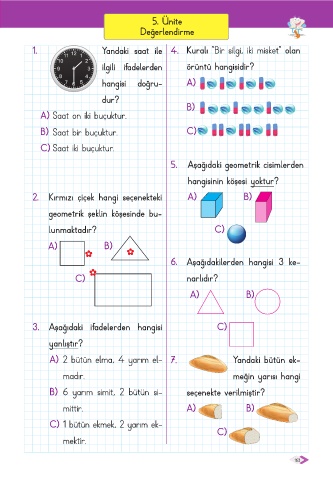 5. Ünite
Değerlendirme
1. Yandaki saat ile
ilgili ifadelerden
hangisi doğru-
dur?
A) Saat on iki buçuktur.
B) Saat bir buçuktur.
C) Saat iki buçuktur.
2. Kırmızı çiçek hangi seçenekteki
geometrik şeklin köşesinde bu-
lunmaktadır?
A)
B)
C)
3. Aşağıdaki ifadelerden hangisi
yanlıştır?
A) 2 bütün elma, 4 yarım el-
madır.
B) 6 yarım simit, 2 bütün si-
mittir.
C) 1 bütün ekmek, 2 yarım ek-
mektir.
4. Kuralı "Bir silgi, iki misket" olan
örüntü hangisidir?
A)
B)
C)
5. Aşağıdaki geometrik cisimlerden
hangisinin köşesi yoktur?
A)
B)
C)
6. Aşağıdakilerden hangisi 3 ke-
narlıdır?
A)
B)
C)
7. Yandaki bütün ek-
meğin yarısı hangi
seçenekte verilmiştir?
A)
B)
C)